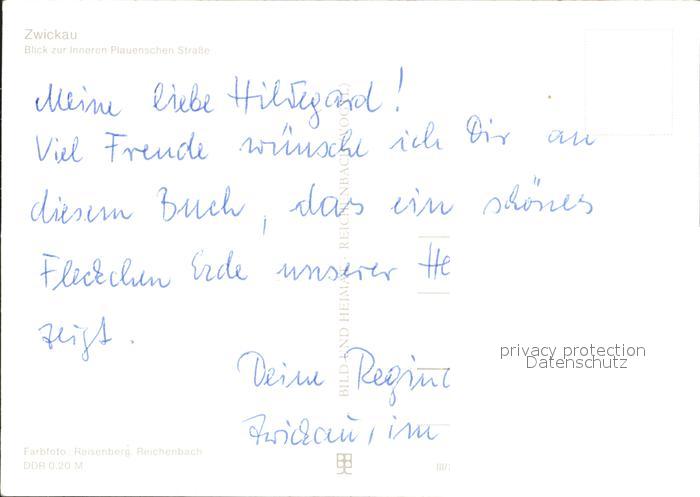 Zwickau
Blick zur Inneren Plauenschen Straße
Meine liebe Hildegard!
Viel Freude wünsche ich Dir an
diesem Buch, das ein schönes
Fleckchen Erde unserer He
zeigt.
Deine Regin
Zwickau, im
BILD UND HEIMAT REICHENBACH (VOGTL)
privacy protection
Datenschutz
Farbfoto: Reisenberg, Reichenbach
DDR 0,20 M
III/